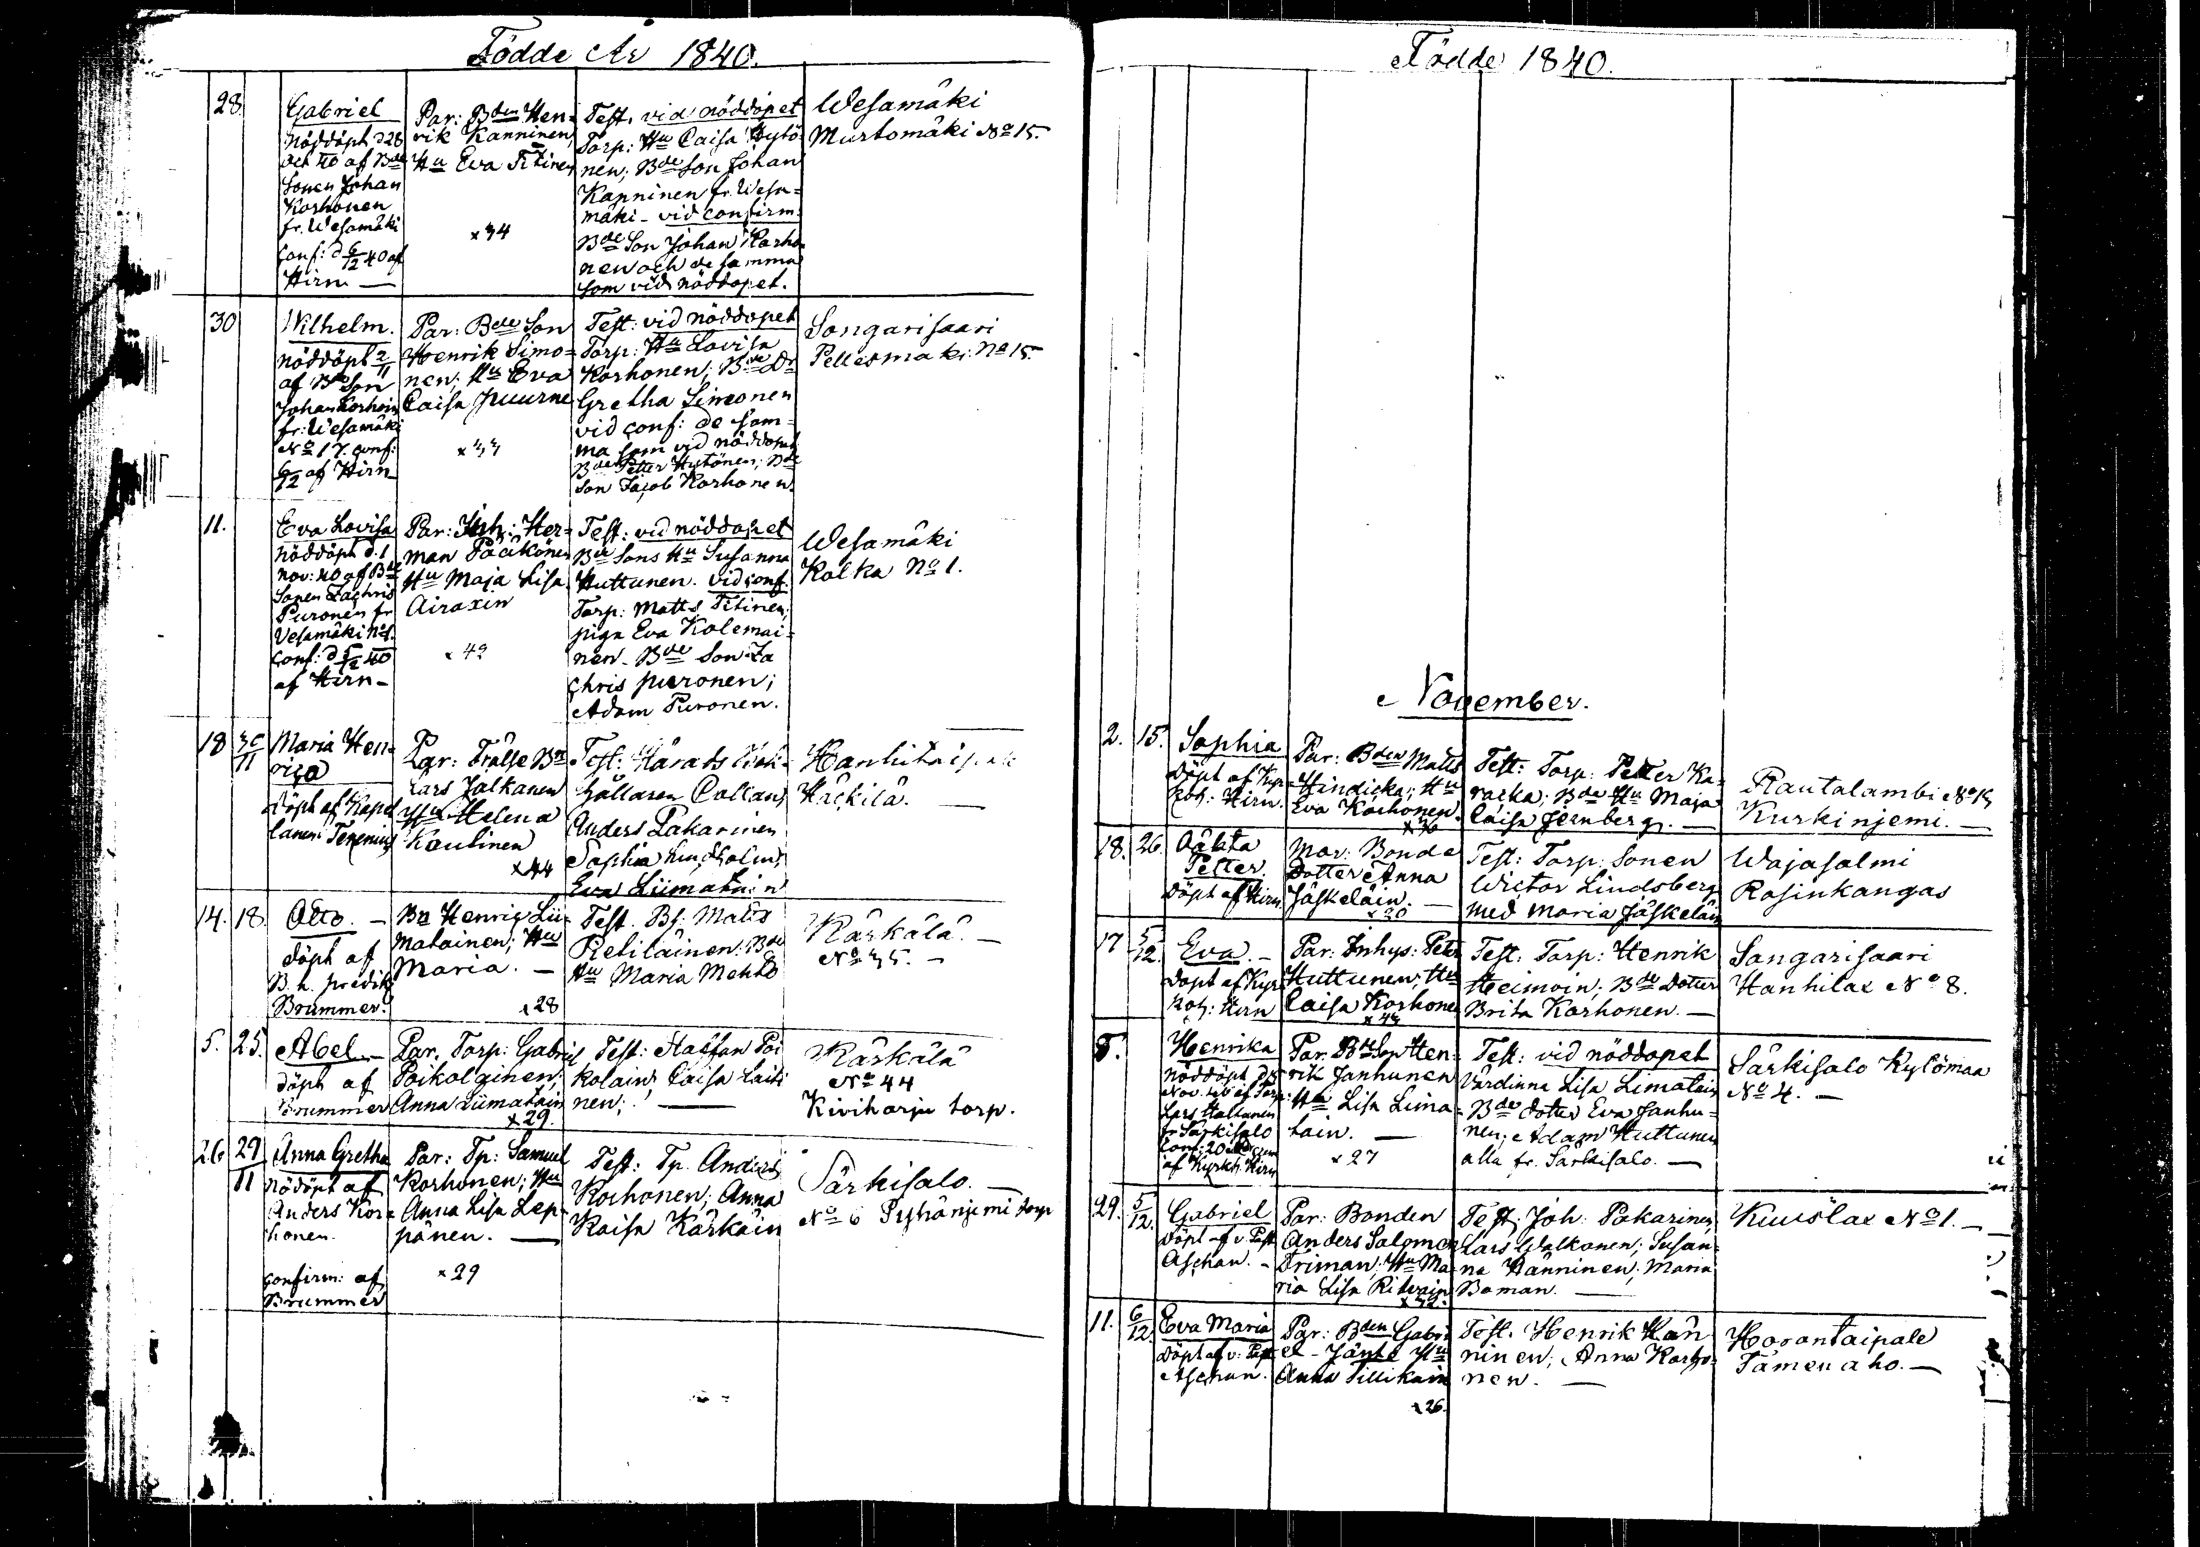 Födde År 1840.
28.
Gabriel
nöddöpt d 28
Oct 40 af Bde
Sonen Johan
Korhonen
fr. Wesamäki
Conf: d 6/12 40 af
Hirn —
Par: Bden Hen-
rik Kanninen,
Hu Eva Titinen
x 34
Test. vid nöddöpet
Torp: Hu Caisa Hytö-
nen; Bde Son Johan
Kanninen fr. Wesa-
mäki - vid confirm:
Bde Son Johan Korho-
nen och de samma
som vid nöddopet.
Wesamäki
Murtomäki No 15.
30
Wilhelm.
nöddöpt 2/11
af Bde Son
Johan Korhoin
fr: Wesamäki
No 17. conf:
6/12 af Hirn
Par: Bde Son
Henrik Simo-
nen; Hu Eva
Caisa Puurne
x 33
Test: vid nöddopet
Torp: Hu Lovisa
Korhonen; Bde Dr
Gretha Simonen
vid conf: de sam-
ma som vid nöddopet
Bde Petter Hytönen; Bde
Son Jacob Korhonen.
Songarisaari
Pellesmäki No 15.
11.
Eva Lovisa
nöddöpt d. 1
nov: 40 af Bde
Sonen Zachris
Puronen fr
Vesamäki No 1.
Conf: d 5/12 40
af Hirn -
Par: Inh: Her-
man Pääkönen
Hu Maja Lisa
Airaxin
x 42
Test: vid nöddopet
Bde Sons Hu Susanna
Huttunen. vid conf.
Torp: Matts Titinen,
piga Eva Kolemai-
nen - Bde Son Za
chris Puronen;
Adam Puronen.
Wesamäki
Kolka No 1.
18
30/11
Maria Hen-
rica
döpt af Kapel
lanen
Par: Frälse Bn
Lars Jalkanen
Hu Helena
Kautinen
x 44
Test: Härads
Gällaren Collan,
Anders Pakarinen
Sophia
Eva Liimatain
Hanhitaipale
Häckilä. —
14.
18.
Otto. —
döpt af
B. h. predik
Brummer.
Bn Henric Lii-
matainen; Hu
Maria. —
x 28
Test. Bf. Matts
Retiläinen: Bde
Hu Maria Mehto
Kärkälä. —
No 35. —
5.
25.
Abel. —
döpt af
Brummer
Par. Torp: Gabriel
Poikolainen;
Anna Liimatain
x 29.
Test: Staffan Poi
kolain; Caisa Laiti
nen; —
Kärkälä
No 44
Kiviharju torp.
26
29/11
Anna Gretha
nödöpt af
Anders Kor-
honen.
confirm: af
Brummer
Par: Tp: Samuel
Korhonen; Hu
Anna Lisa Lep-
pänen. —
x 29
Test: Tp. Anders
Korhonen; Anna
Kaisa Kärkäin
Särkisalo. —
No 6 Pyhänjemi torp
Födde 1840.
November.
2.
15.
Sophia
döpt af Kyr-
koh: Hirn.
Par: Bden Matts
Hindicka; Hu
Eva Korhonen.
x 36
Test: Torp: Petter Ka-
racka; Bde Hu Maja
Caisa Jernberg. —
Rautalambi No 15
Kurkinjemi. —
18.
26.
Oäkta
Petter.
döpt af Hirn.
Mor: Bonde
Dotter Anna
Jäskeläin. —
x 20
Test: Torp: Sonen
Wictor Lindsberg
med Maria Jäskeläin
Wajasalmi
Rosinkangas
17
5/12.
Eva. —
döpt af Kyr
koh: Hirn
Par: Inhys: Peter
Huttunen; Hu
Caisa Korhone
x 43
Test: Torp: Henrik
Heimoin; Bde Dotter
Brita Korhonen. —
Sangarisaari
Hanhilax No 8.
8.
Henrika
nöddöpt d 8
Nov. 40 af Torp:
Lars Hallanen
fr Särkisalo
Conf: 20
af Kyrkh. Hirn
Par. Bde Son Hen-
rik Janhunen
Hu Lisa Lima-
tain. —
x 27
Test: vid nöddopet
Värdinna Lisa Limatain
Bde doter Eva Janhu-
nen; Adam Huttunen
alla fr. Särkisalo. —
Särkisalo Kylömaa
No 4. —
29.
5/12.
Gabriel
döpt af v. Past
Aschan. —
Par: Bonden
Anders Salomon
Friman; Hu Ma-
ria Lisa Ritvain
x 32.
Test: Joh: Pakarinen,
Lars Walkonen; Susan-
na Hänninen; Maria
Boman. —
Kuuslax No 1. —
11.
6/12.
Eva Maria
döpt af v: Past
Aschan.
Par: Bden Gabri
el - Jänte Hu
Anna Tillikain
x 26.
Test. Henrik Hän
ninen; Anna Korho-
nen. —
Horontaipale
Tämenaho. —